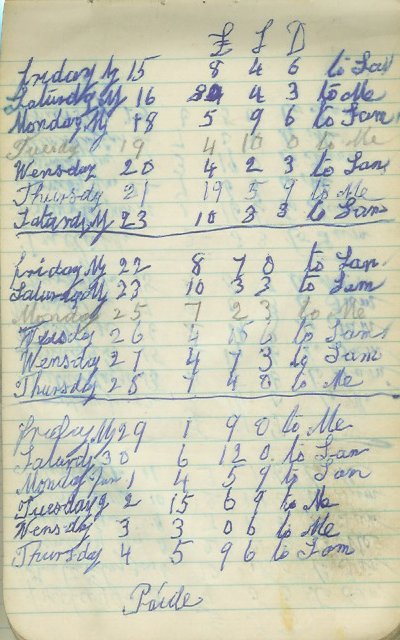 £ S D
Friday My 15 8 4 6 to Sam
Saturday My 16 4 3 to Me
Monday My 18 5 9 6 to Sam
Tuesdy 19 4 10 0 to Me
Wensday 20 4 2 3 to Sam
Thursdy 21 19 5 9 to Me
Satardy M 23 10 3 3 to Sam
Friday My 22 8 7 0 to Sam
Saturday My 23 10 3 3 to Sam
Monday 25 7 2 3 to Me
Tuesdy 26 4 15 6 to Sam
Wensday 27 4 7 3 to Sam
Thursdy 28 7 4 0 to Me
Friday My 29 1 9 0 to Me
Saturdy 30 6 12 0 to Sam
Monday Jun 1 4 5 9 to Sam
Tuesday 2 15 6 9 to Me
Wensdy 3 3 0 6 to Me
Thursday 4 5 9 6 to Sam
Paide